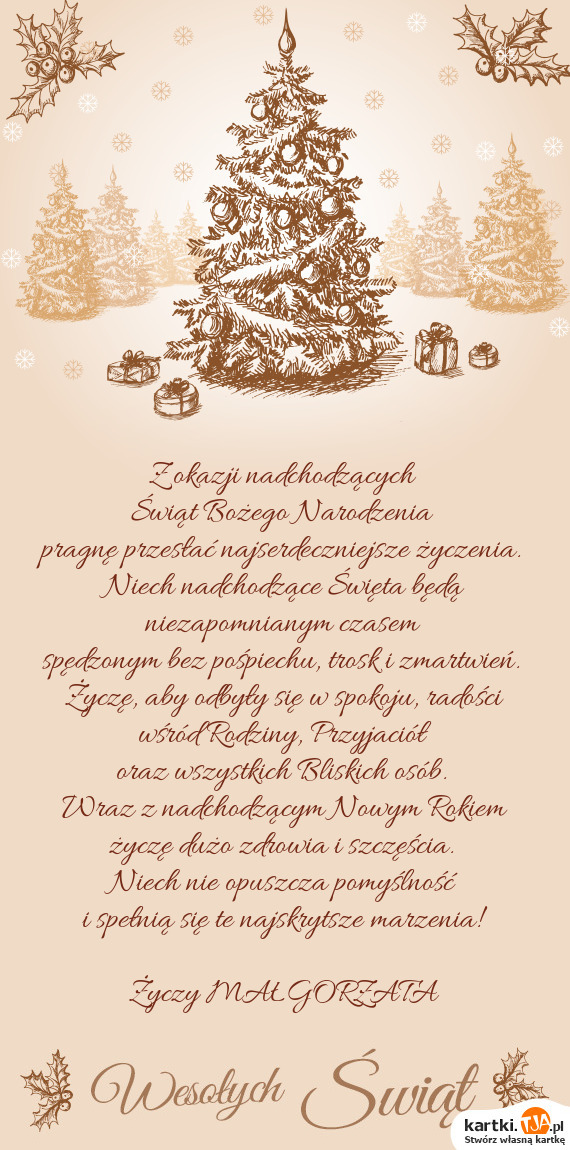 Z okazji nadchodzących
Świąt Bożego Narodzenia
pragnę przesłać najserdeczniejsze życzenia.
Niech nadchodzące Święta będą
niezapomnianym czasem
spędzonym bez pośpiechu, trosk i zmartwień.
Życzę, aby odbyły się w spokoju, radości
wśród Rodziny, Przyjaciół
oraz wszystkich Bliskich osób.
Wraz z nadchodzącym Nowym Rokiem
życzę dużo zdrowia i szczęścia.
Niech nie opuszcza pomyślność
i spełnią się te najskrytsze marzenia!
Życzy MAŁGORZATA
Wesołych Świąt
kartki.TJA.pl
Stwórz własną kartkę